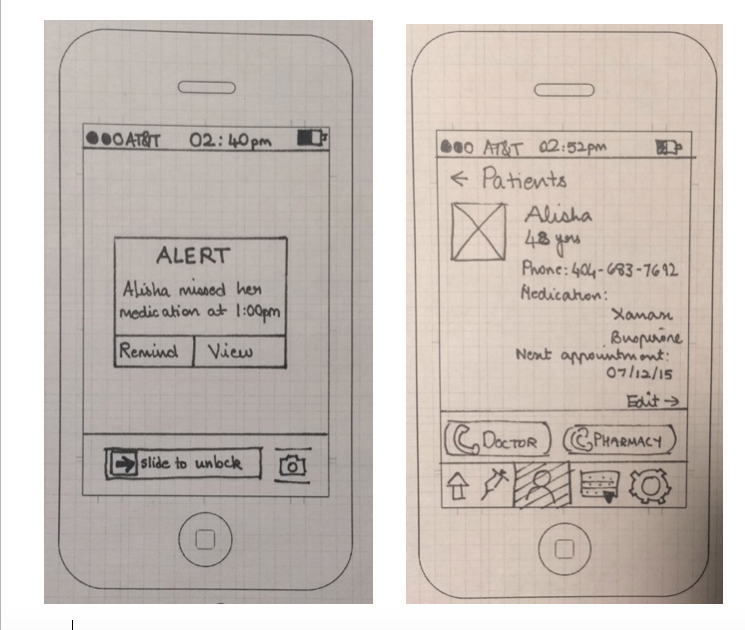 AT&T 02:40pm
ALERT
Alisha missed her
medication at 1:00pm
Remind View
slide to unlock
AT&T 02:52pm
← Patients
Alisha
48 yrs
Phone: 404-683-7692
Medication:
Xanax
Buspirone
Next appointment:
07/12/15
Edit →
DOCTOR PHARMACY